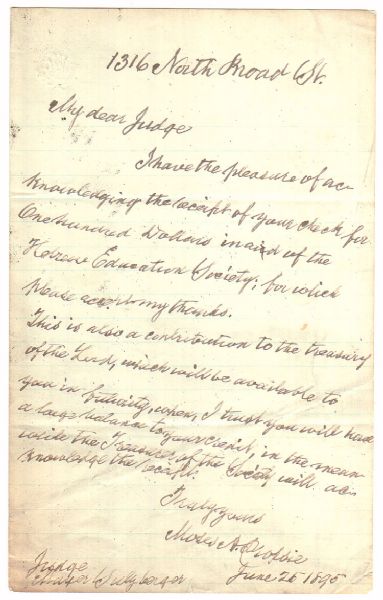 1316 North Broad St.
My dear Judge
I have the pleasure of ac-
knowledging the receipt of your check for
One hundred Dollars in aid of the
Hebrew Education Society; for which
Please accept my thanks.
This is also a contribution to the treasury
of the Lord, which will be available to
you in futurity, when, I trust you will have
a large balance to your credit, in the mean-
while the Treasurer of the Society will ac-
knowledge the receipt.
Truly yours
Moses A. Dropsie
Judge
Mayer Sulzberger
June 25 1895